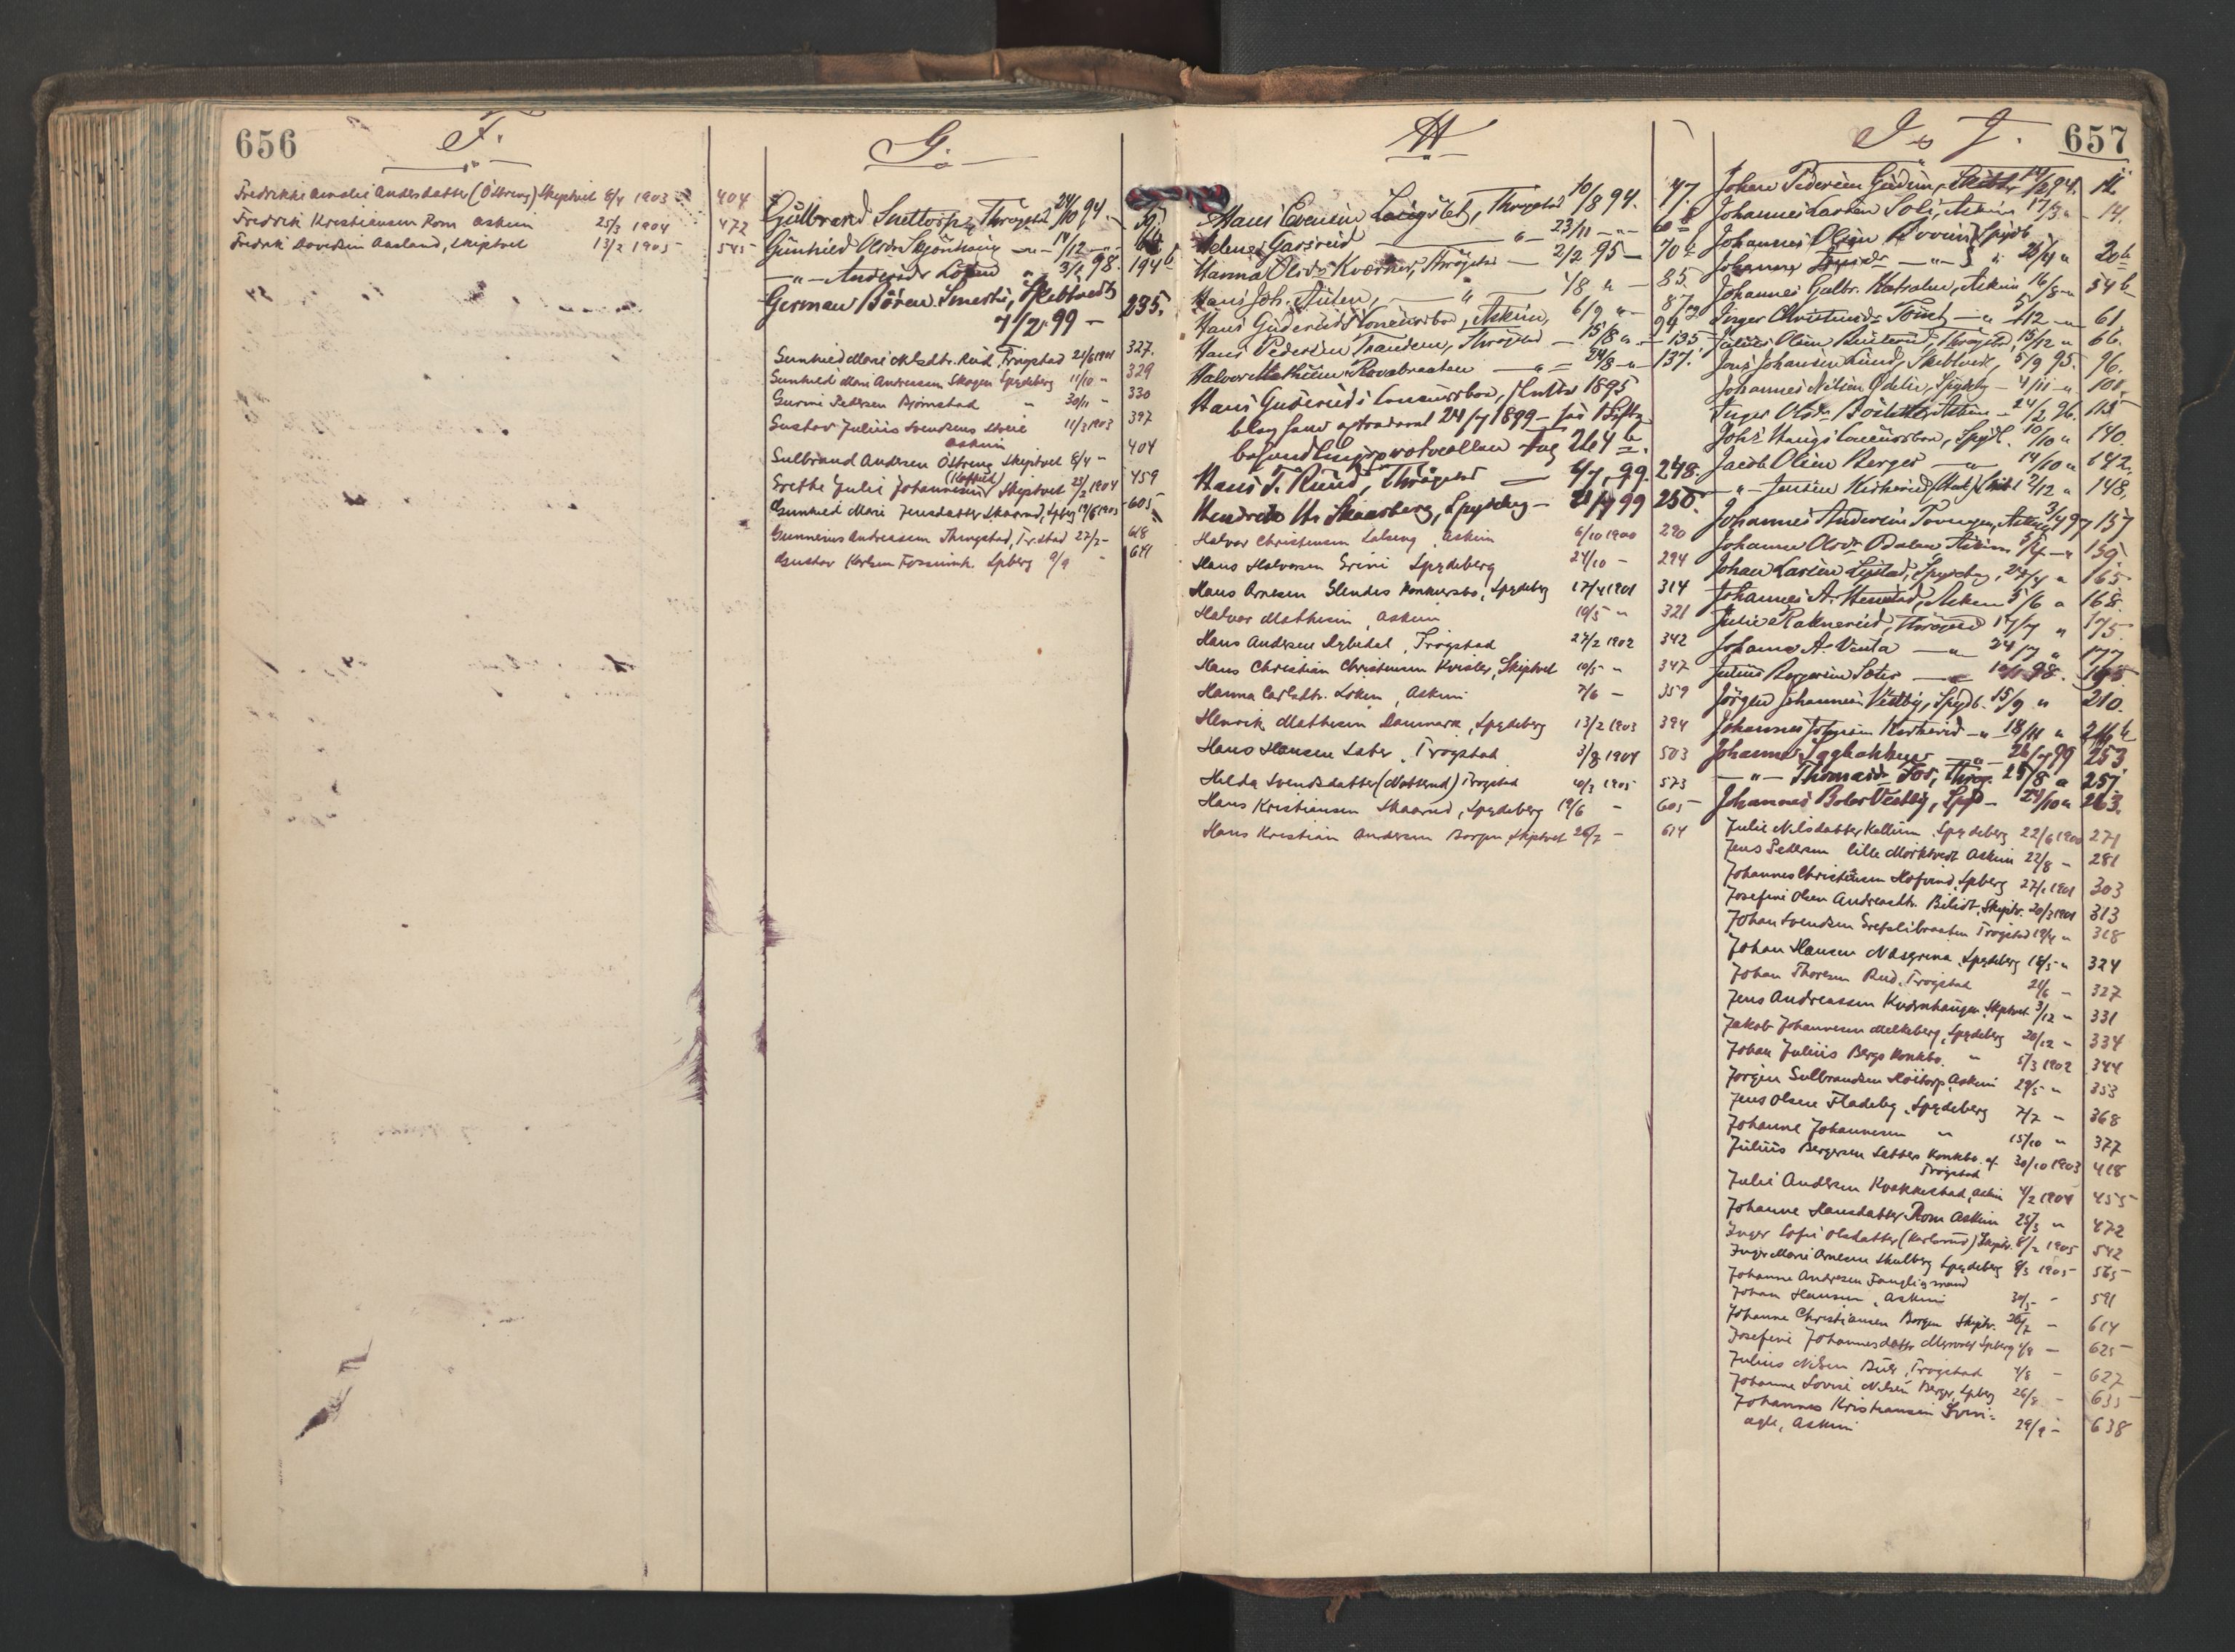 656
F.
Fredrikke Amalie Andersdatter (Östreng) Skiptvet 8/4 1903 404
Fredrik Kristiansen Rom Askim 25/3 1904 472
Fredrik Davidsen Aasland, Skiptvet 13/2 1905 545
G.
Gulbrand Snettorp, Thrøgstad 24/10 94. 51
Gunhild Olsdr 14/12 -"-
-"- Andersdr Löken " 3/1 98. 194b
German Sören Skibtvedt
7/2. 99 - 235.
Gunhild Marie Olsdtr. Rud, Trøgstad 21/6 1901 327.
Gunhild Mari Andreassen Skogen Spydeberg 11/10 " 329
Gurine Pettersen Bjørnstad " 30/11 " 330
Gustav Julius Svendsens
Askim 11/3 1903 397
Gulbrand Andersen Östreng Skiptvet 8/4 " 404
Grethe Julie Johannesen Skiptvet 23/2 1904 459
Gunhild Marie Jensdatter Skaarud, Spberg 19/6 1905 605
Gunnerius Andreassen Thrugstad, Tr.stad 27/7 - 618
Gustav Karlsen Fossumh. Spberg 9/9 - 641
657
H
Hans Evensen Langslet, Thrøgstad 10/8 94. 47.
Helmer Gaasrud -"- 23/11 -"- 60b
Hanna Olsdr Kværner, Thrøgstad - 2/2 95 - 70b
Hans Joh. -"- 1/8 " - 85.
Hans Guderuds Concursbo, Askim, 6/9 " - 87
Hans Pedersen Trandem, Thrøgstad - 15/8 " - 135
Halvor Mathisen Rovabraaten -"- 24/8 -"- 137.
Hans Guderuds Concursbo, sluttet 1895
blev paa 24/7 1899 - jas Skifte
behandlingsprotocollen pag 264b
Hans T. Ruud, Thrøgstad - 6/7. 99. 248.
Hendrik Hs Skaarberg, Spydeberg - 21/7 99 250.
Halvor Christensen Lalseng, Askim 6/10 1900 290
Hans Halvorsen Grini Spydeberg 24/10 - 294
Hans Arnesen Glendes Konkursbo, Spydeberg 17/4 1901 314
Halvor Mathisen, Askim 10/5 " 321
Hans Andersen Dybedal, Trøgstad 27/2 1902 342
Hans Christian Christensen Kvisler, Skiptvet 10/5 " 347
Hanna Carlsdtr. Løken, Askim 7/6 - 359
Henrik Mathisen Danmark, Spydeberg 13/2 1903 394
Hans Hansen Sæter, Trøgstad 3/8 1904 503
Helda Svendsdatter (Natterud) Trøgstad 10/3 1905 573
Hans Kristiansen Skaarud, Spydeberg 19/6 - 605
Hans Kristian Andersen Borgen, Skiptvet 26/7 - 614
I og J.
Johan Pedersen Gudim, Skibtv. 94. 12
Johannes Larsen Soli, Askim 17/3 " - 14.
Johannes Olsen Spydb.
Johanne -"- " 25/4 " 20b
Johannes Gulbr. Katralen, Askim 16/8 -"- 54b
Inger Christensdr -"- 5/12 -"- 61
Julius Olsen Thrøgstad, 15/12 " 66.
Jens Johansen Lund, Skibtvedt, 5/9 95. 96.
Johannes Nilsen Ødelie, Spydeb - 4/11 -"- 100.
Inger Olsdr Askim - 24/2 96. 115
Johs. Haugs Concursbo, Spyd. 10/10 " 140.
Jacob Olsen Berger -"- 14/10 " 142.
-"- Jensen Kirkerud 2/12 " 148.
Johannes Andersen Askim 3/4 97 157
Johanne Olsdr Dalen, Askim 5/4 -"- 159
Johan Larsen Lystad, Spydeberg, 24/4 " 165
Johannes A. Askim 5/6 " 168.
Julie Raknerud, Thrøgstad 17/7 " 175.
Johanne A. Venta -"- 24/7 " 177
Julius Borgersen Sæter -"- 98. 195
Jörgen Johannesen Vestby, Spydb. 15/9 " 210.
Johannes Johnsen Kirkerud -"- 18/11 " 216b
Johannes -"- 26/7 99 253.
-"- Thomasdr Fos, Thrøg. 25/8 " 257.
Johannes Vestby, Spyd - 24/10 " 263.
Julie Nilsdatter Kallum, Spydeberg 22/6 1900 271
Jens Pettersen lille Mörkvedt Askim 22/8 - 281
Johannes Christensen Hofvind, Spberg 27/1 1901 303
Josefine Olsen Andreasdtr. Skiptv. 20/3 1901 313
Johan Svendsen Grefslibraaten Trøgstad 19/4 " 318
Johan Hansen Næsgrina, Spydeberg 18/5 " 324
Johan Thoresen Rud, Trøgstad 21/6 - 327
Jens Andreassen Kvernhaugen, Skiptvet 3/12 " 331
Jakob Johannesen Melkeberg, Spydeberg 20/12 " 334
Johan Julius Bergs Konkbo. " 5/3 1902 344
Jörgen Gulbrandsen Höitorp, Askim 29/5 " 353
Jens Olsen Fladeby, Spydeberg 7/7 - 368
Johanne Johannesen " 15/10 " 377
Julius Bergersen Sætters Konkbo. af
Trøgstad 30/10 1903 418
Julie Andersen Kvakkestad, Askim 4/2 1904 455
Johanne Hansdatter Rom Askim 25/3 " 472
Inger Sofie Olsdatter (Karlsrud) Skiptv. 8/2 1905 542
Inger Marie Arnesen Skulberg Spydeberg 8/3 1905 565
Johanne Andresen
Johan Hansen, Askim 30/5 - 591
Johanne Christiansen Borgen Skiptv. 26/7 - 614
Josefine Johannesdatter Spberg 1/8 - 625
Julius Nilsen Buer, Trøgstad 4/8 - 627
Johanne Lovise Nilsen Berger, Spberg 26/8 - 635
Johannes Kristiansen
Askim 29/9 - 638